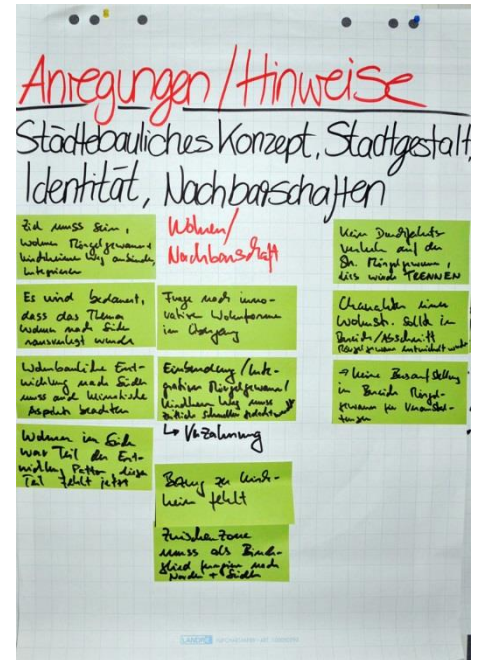 Anregungen/Hinweise
Städtebauliches Konzept, Stadtgestalt,
Identität, Nachbarschaften
Ziel muss sein,
Wohnen Ringelgewann +
Kirchheimer Weg anbinden,
integrieren
Es wird bedauert,
dass das Thema
Wohnen nach Süden
rausverlegt wurde
Wohnbauliche Ent-
wicklung nach Süden
muss auch klimatische
Aspekte beachten
Wohnen im Süden
war Teil der Ent-
wicklung Patton, dieser
Teil fehlt jetzt
Wohnen/
Nachbarschaft
Frage nach inno-
vativen Wohnformen
im Übergang
Einbindung/Inte-
gration Ringelgewann/
Kirchheim. Weg muss
↳ Verzahnung
Bezug zu Kirch-
heim fehlt
Zwischenzone
muss als Binde-
glied fungieren nach
Norden + Süden
Kein Durchfahrts-
verkehr auf der
Str. Ringelgewann,
dies würde TRENNEN
Charakter einer
Wohnstr. sollte im
Bereich/Abschnitt
Ringelgewann entwickelt werden
→ keine Busaufstellung
im Bereich Ringel-
gewann für Veranstal-
tungen